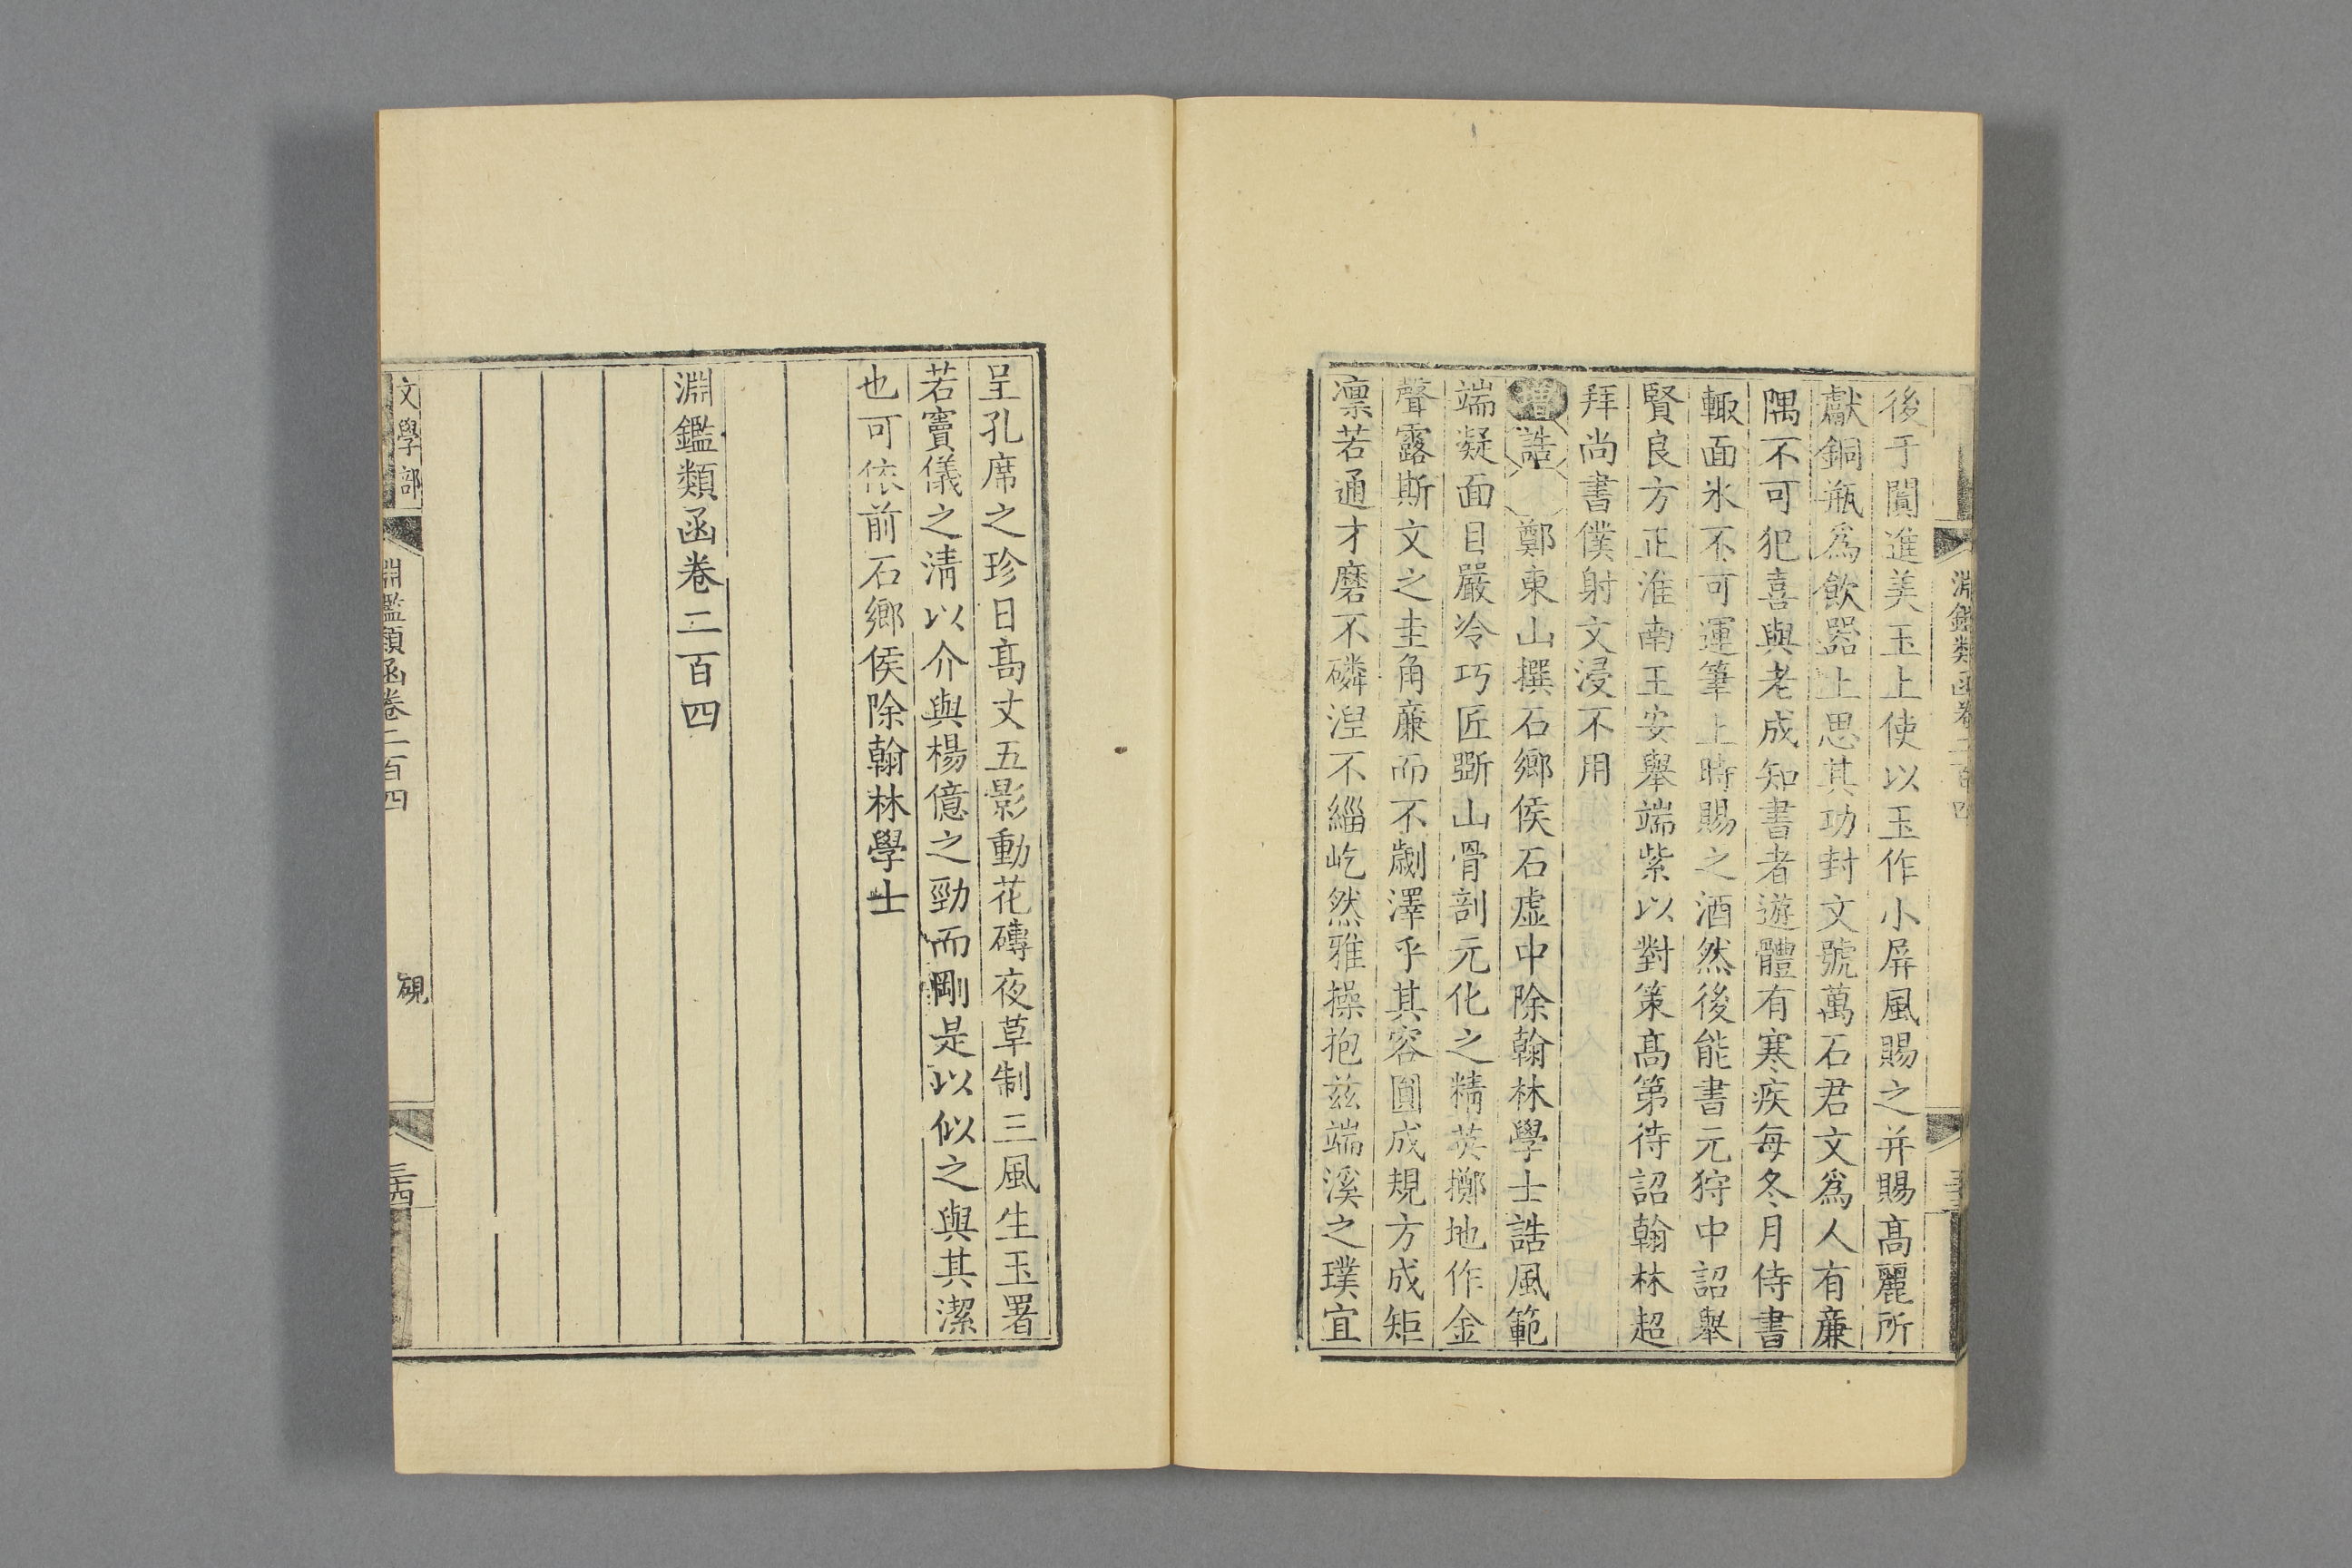 後于闐進美玉上使以玉作小屏風賜之并賜高麗所
獻銅瓶爲飲器上思其功封文號萬石君文爲人有亷
隅不可犯喜與老成知書者遊體有寒疾每冬月侍書
輙面氷不可運筆上時賜之酒然後能書元狩中詔舉
賢良方正淮南王安舉端紫以對策高第待詔翰林超
拜尚書僕射文浸不用
增誥 鄭東山撰石鄉侯石虛中除翰林學士誥風範
端凝面目嚴冷巧匠斲山骨剖元化之精英擲地作金
聲露斯文之圭角亷而不劌澤乎其容圓成規方成矩
凛若通才磨不磷湼不緇屹然雅操抱茲端溪之璞宜
淵鑑類函卷二百四
呈孔席之珍日高丈五影動花磚夜草制三風生玉署
若竇儀之淸以介與楊億之勁而剛是以似之與其潔
也可依前石鄉侯除翰林學士
淵鑑類函卷二百四
文學部
淵鑑類函卷二百四
硯
三十四